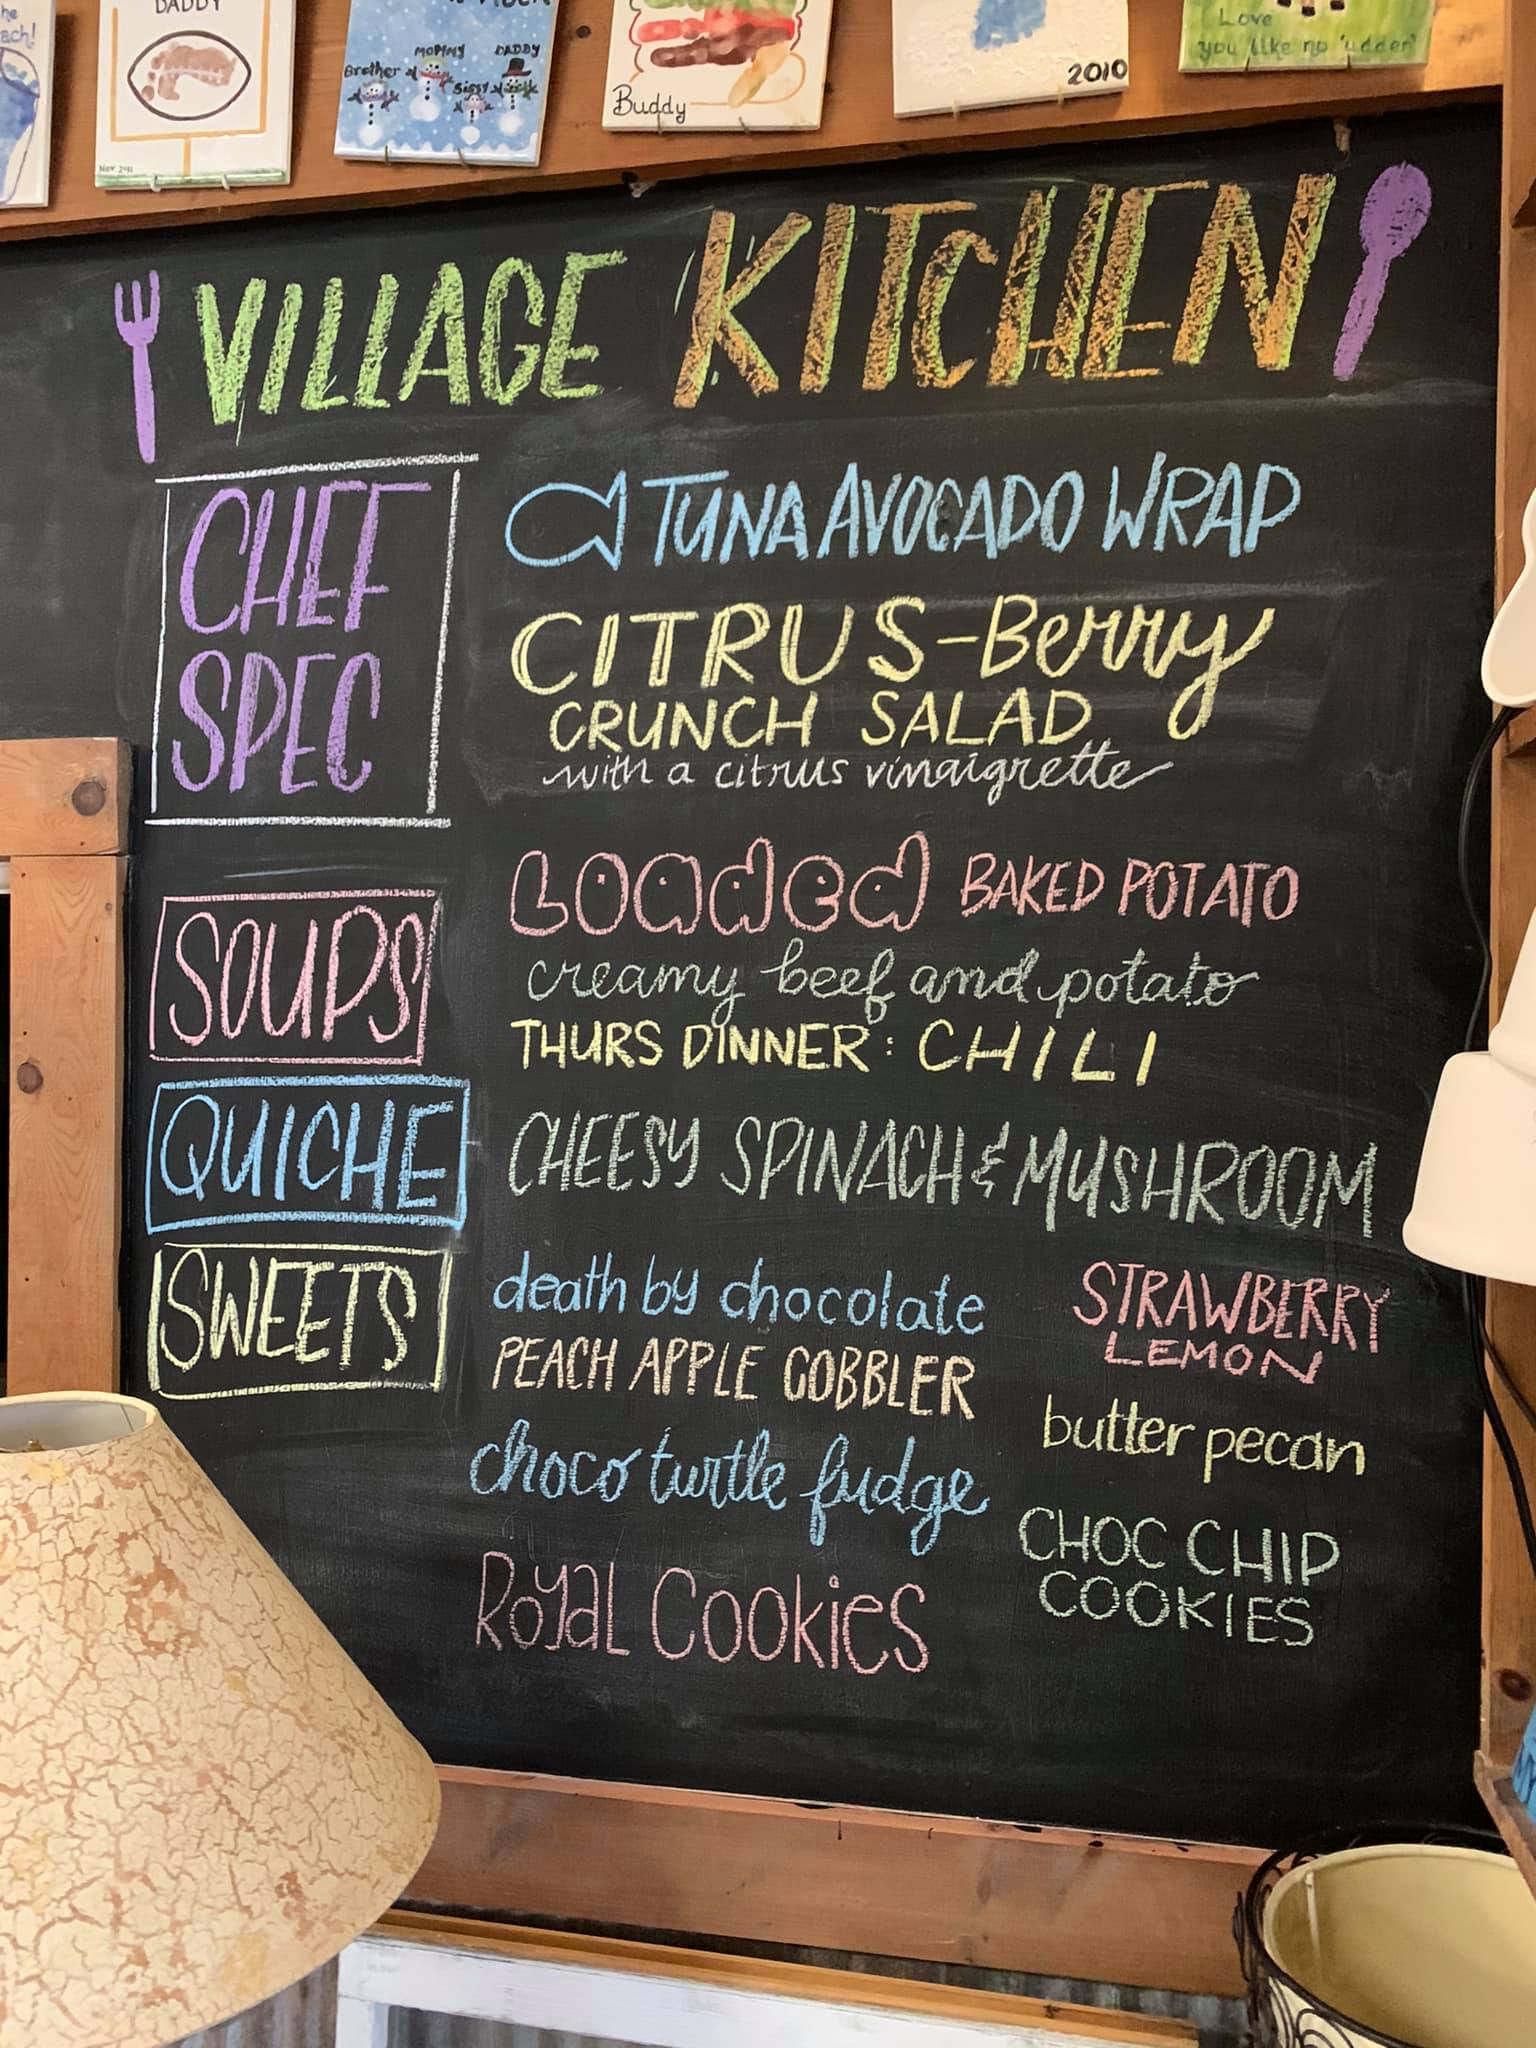 DADDY
Nov. 2011
Brother
MOMMY
Sissy
DADDY
Buddy
2010
Love
you like no 'udder'
VILLAGE KITCHEN
CHEF
SPEC
TUNA AVOCADO WRAP
CITRUS-Berry
CRUNCH SALAD
with a citrus vinaigrette
SOUPS
Loaded BAKED POTATO
creamy beef and potato
THURS DINNER: CHILI
QUICHE
CHEESY SPINACH & MUSHROOM
SWEETS
death by chocolate
PEACH APPLE COBBLER
choco turtle fudge
Royal Cookies
STRAWBERRY
LEMON
butter pecan
CHOC CHIP
COOKIES